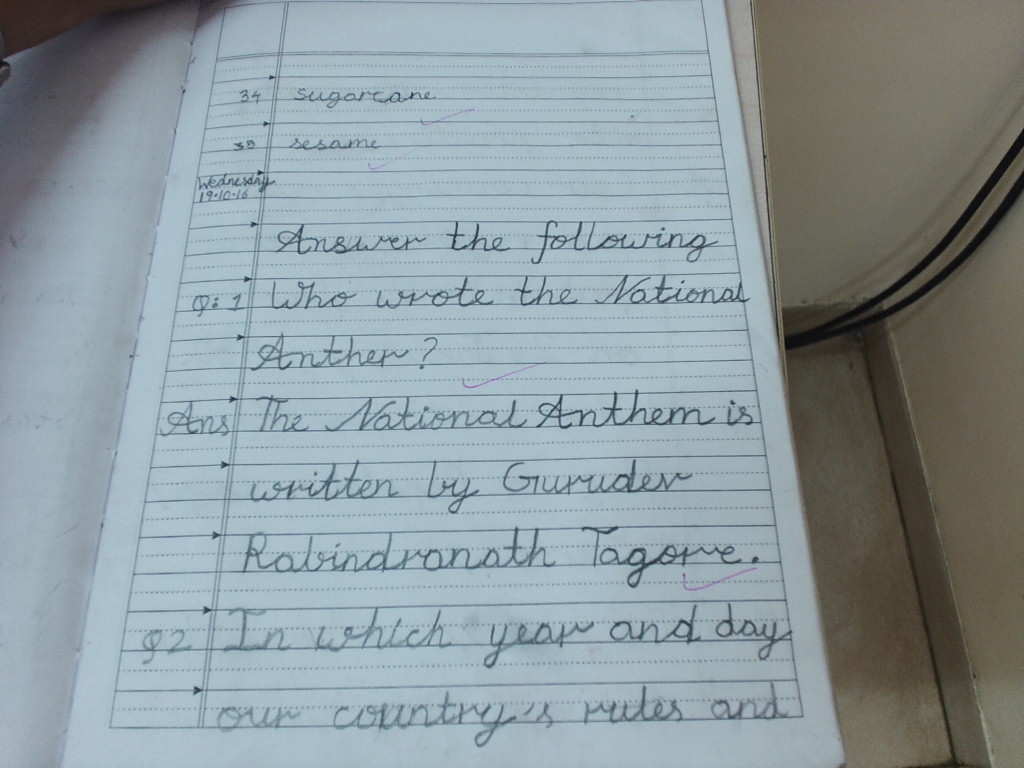 34 sugarcane
35 sesame
Wednesday
19.10.16
Answer the following
Q: 1 Who wrote the National
Anther?
Ans The National Anthem is
written by Gurudev
Rabindranath Tagore.
Q2 In which year and day
our country's rules and